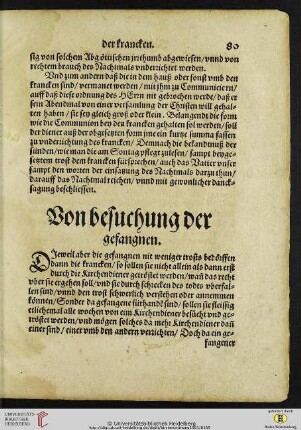 der krancken. 80
sig von solchem Abgötischen jrrthumb abgewisen/ vnnd von
rechtem brauch des Nachtmals vnderrichtet werden.
Vnd zum andern daß die in dem hauß oder sonst vmb den
krancken sind/ vermanet werden/ mit jhm zu Communiciern/
auff daß dise ordnung des HErrn nit gebrochen werde/ daß er
sein Abendmal von einer versamlung der Christen will gehal-
ten haben/ sie sey gleich groß oder klein. Belangendt die form
wie die Communion bey den krancken gehalten sol werden/ soll
der diener auß der obgesetzten form jme ein kurtze summa fassen
zu vnderrichtung des krancken/ Demnach die bekandtnuß der
sünden/ wie man die am Sontag pflegt zulesen/ sampt beyge-
setztem trost dem krancken fürsprechen/ auch das Vatter vnser
sampt den worten der einsatzung des Nachtmals darzu thun/
darauff das Nachtmal reichen/ vnnd mit gewonlicher danck-
sagung beschliessen.
Von besuchung der
gefangnen.
Dieweil aber die gefangnen nit weniger trosts bedörffen
dann die krancken/ so sollen sie nicht allein als dann erst
durch die Kirchendiener getröstet werden/ wañ das recht
vber sie ergehen soll/ vnd sie durch schrecken des todts vberfal-
len sind/ vnnd den trost schwerlich verstehen oder annemmen
können/ Sonder da gefangene fürhand sind/ sollen sie fleissig
etlichemal alle wochen von ein Kirchendiener besücht vnd ge-
tröstet werden/ vnd mögen solches da mehr Kirchendiener dañ
einer sind/ einer vmb den andern verrichten/ Doch da ein ge-
fangener
UNIVERSITÄTS-
BIBLIOTHEK
HEIDELBERG
© Universitätsbibliothek Heidelberg